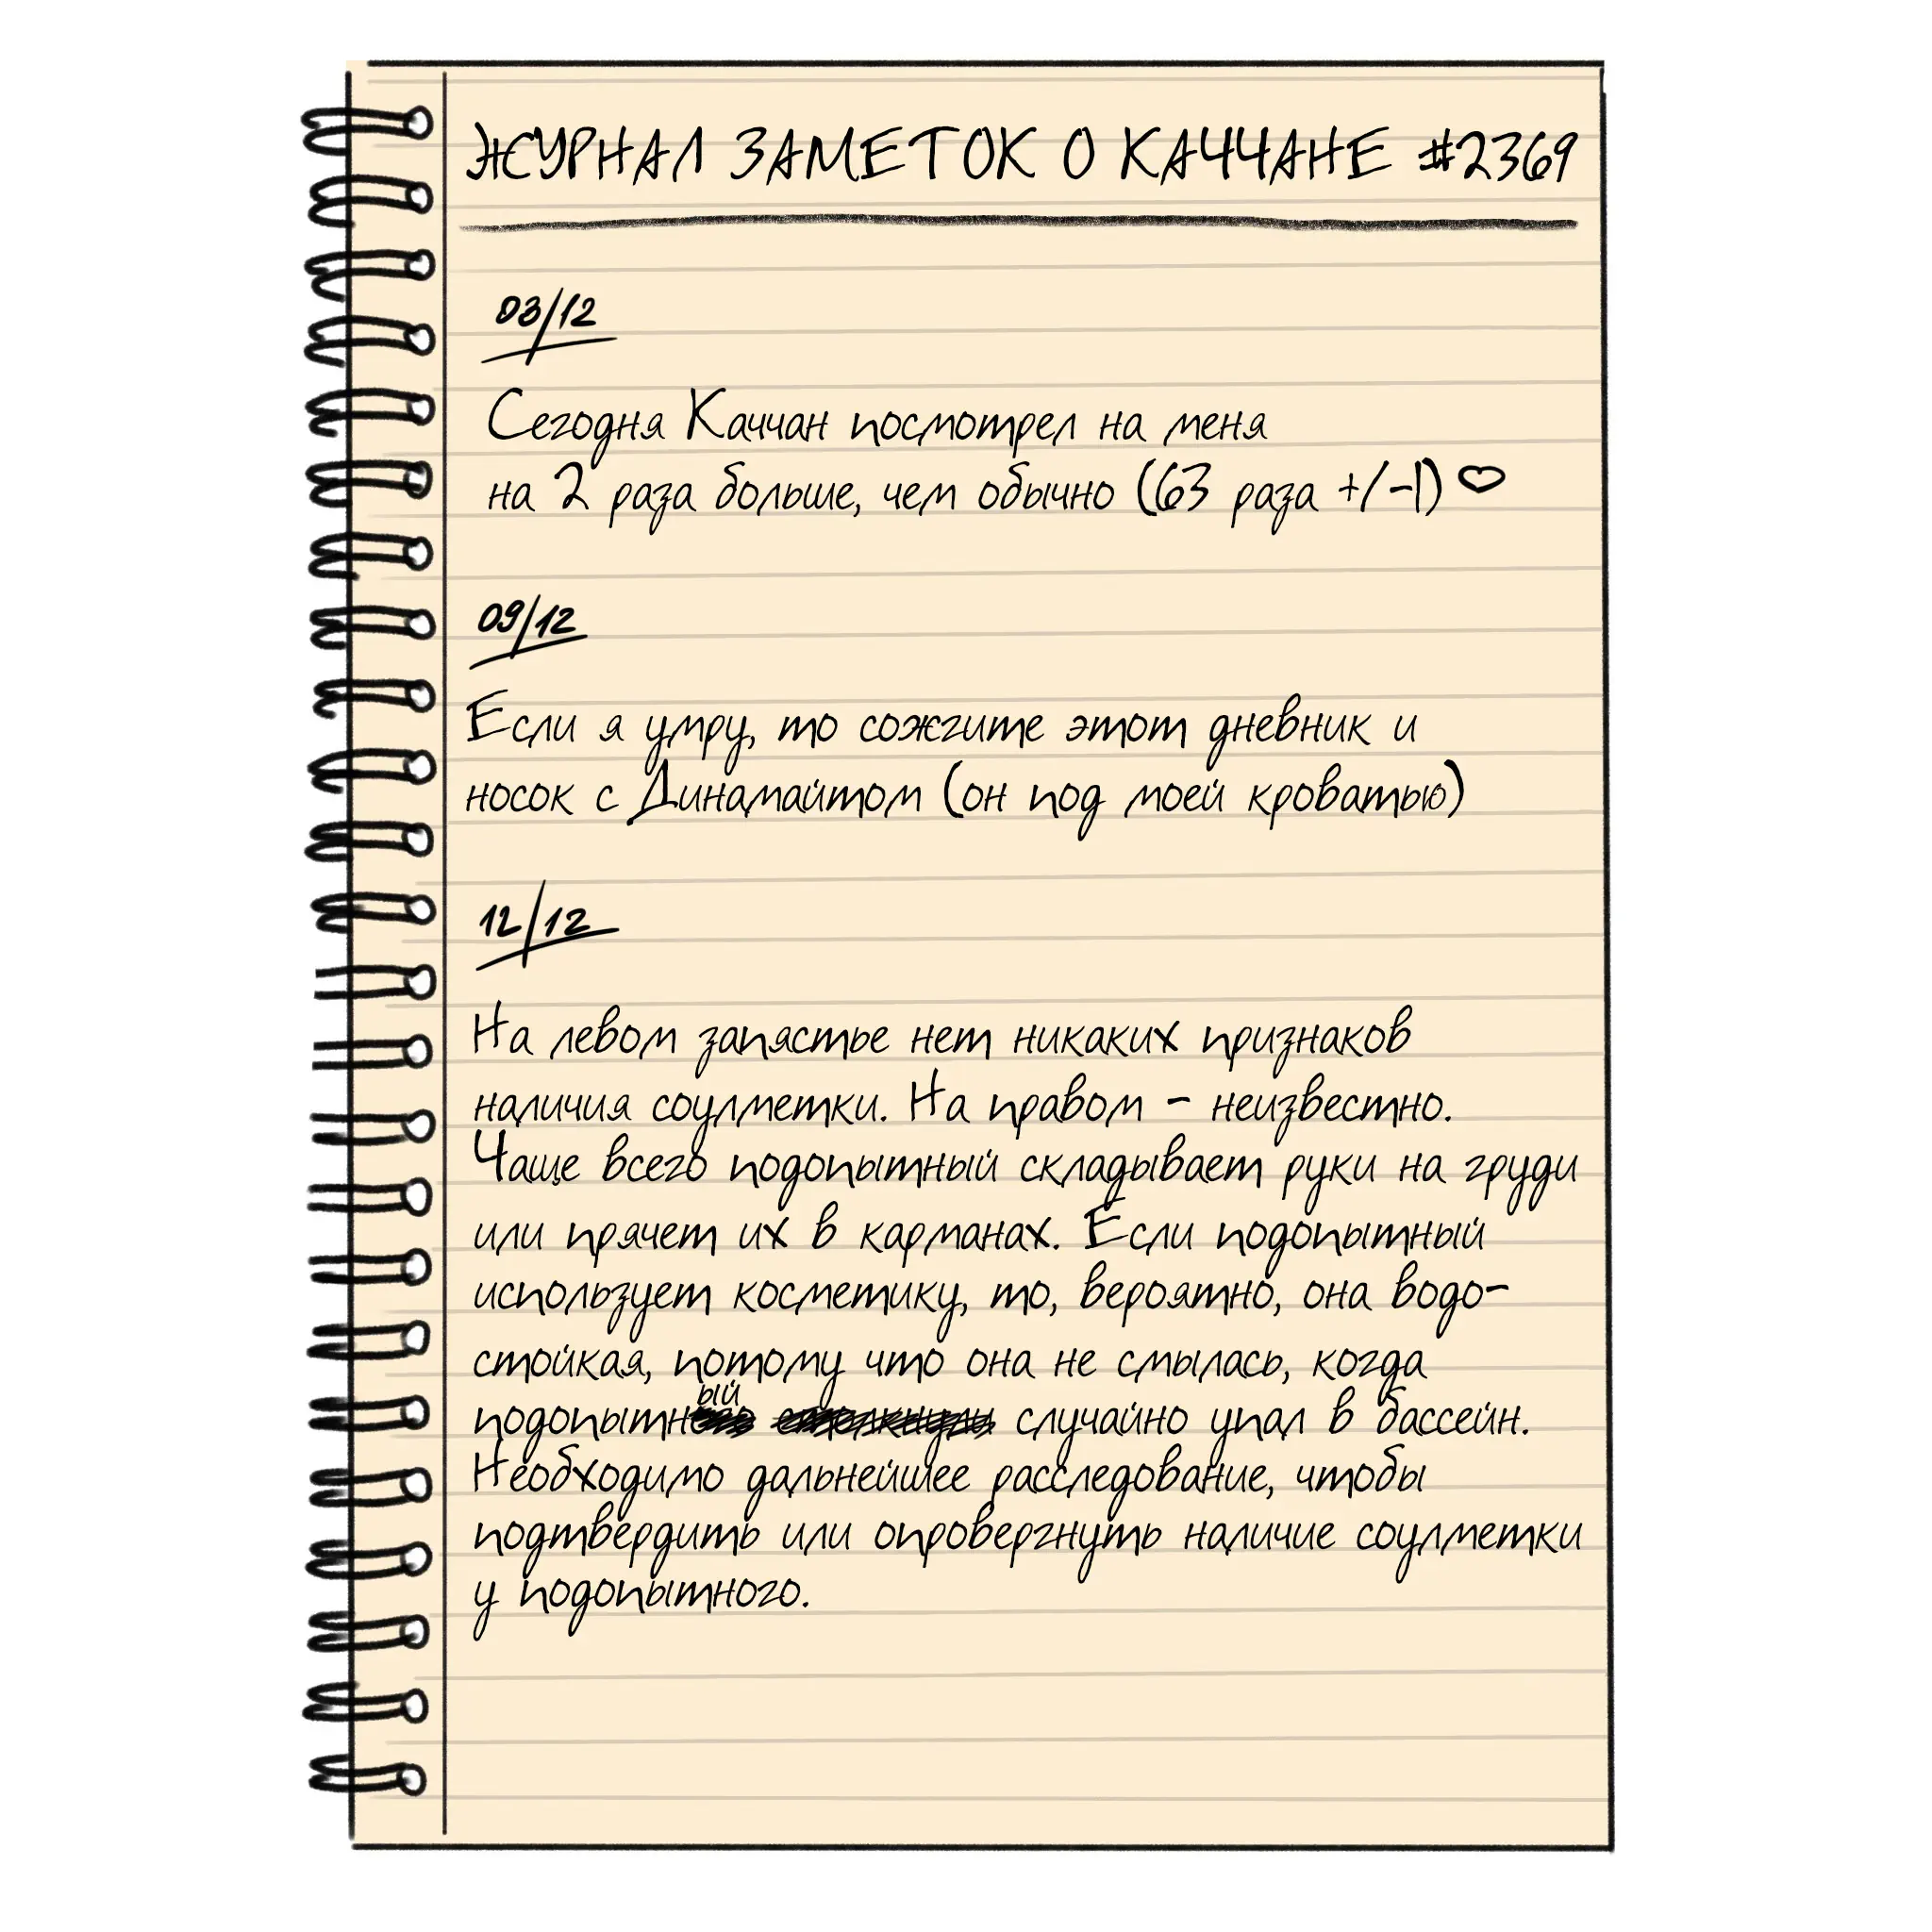 ЖУРНАЛ ЗАМЕТОК О КАЧЧАНЕ #2369
03/12
Сегодня Каччан посмотрел на меня
на 2 раза больше, чем обычно (63 раза +/-1) ♡
09/12
Если я умру, то сожгите этот дневник и
носок с Динамайтом (он под моей кроватью)
12/12
На левом запястье нет никаких признаков
наличия соулметки. На правом - неизвестно.
Чаще всего подопытный складывает руки на груди
или прячет их в карманах. Если подопытный
использует косметику, то, вероятно, она водо-
стойкая, потому что она не смылась, когда
подопытный случайно упал в бассейн.
Необходимо дальнейшее расследование, чтобы
подтвердить или опровергнуть наличие соулметки
у подопытного.